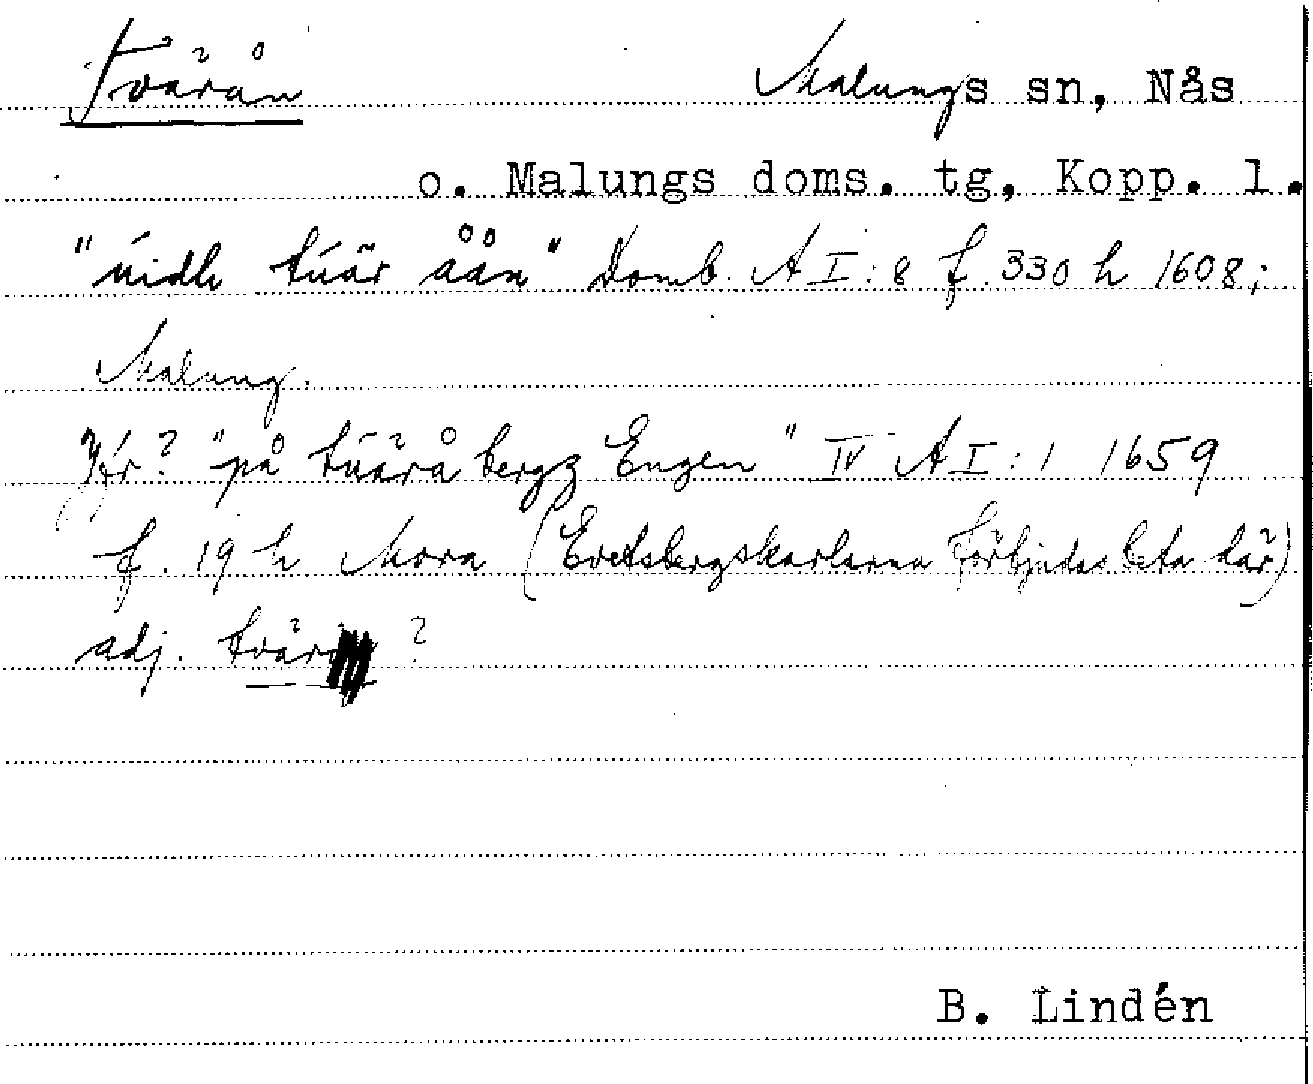 Tvärån Malungs sn, Nås
o. Malungs doms. tg, Kopp. l.
"uidh tuär åån" Domb. A I:8 f. 330 h 1608;
Malung.
Jfr? "på tuärå bergz Engen" IV A I:1 1659
f. 19 h Mora (Evetsbergskarlarna förbjudas beta där)
adj. tvär ?
B. Lindén